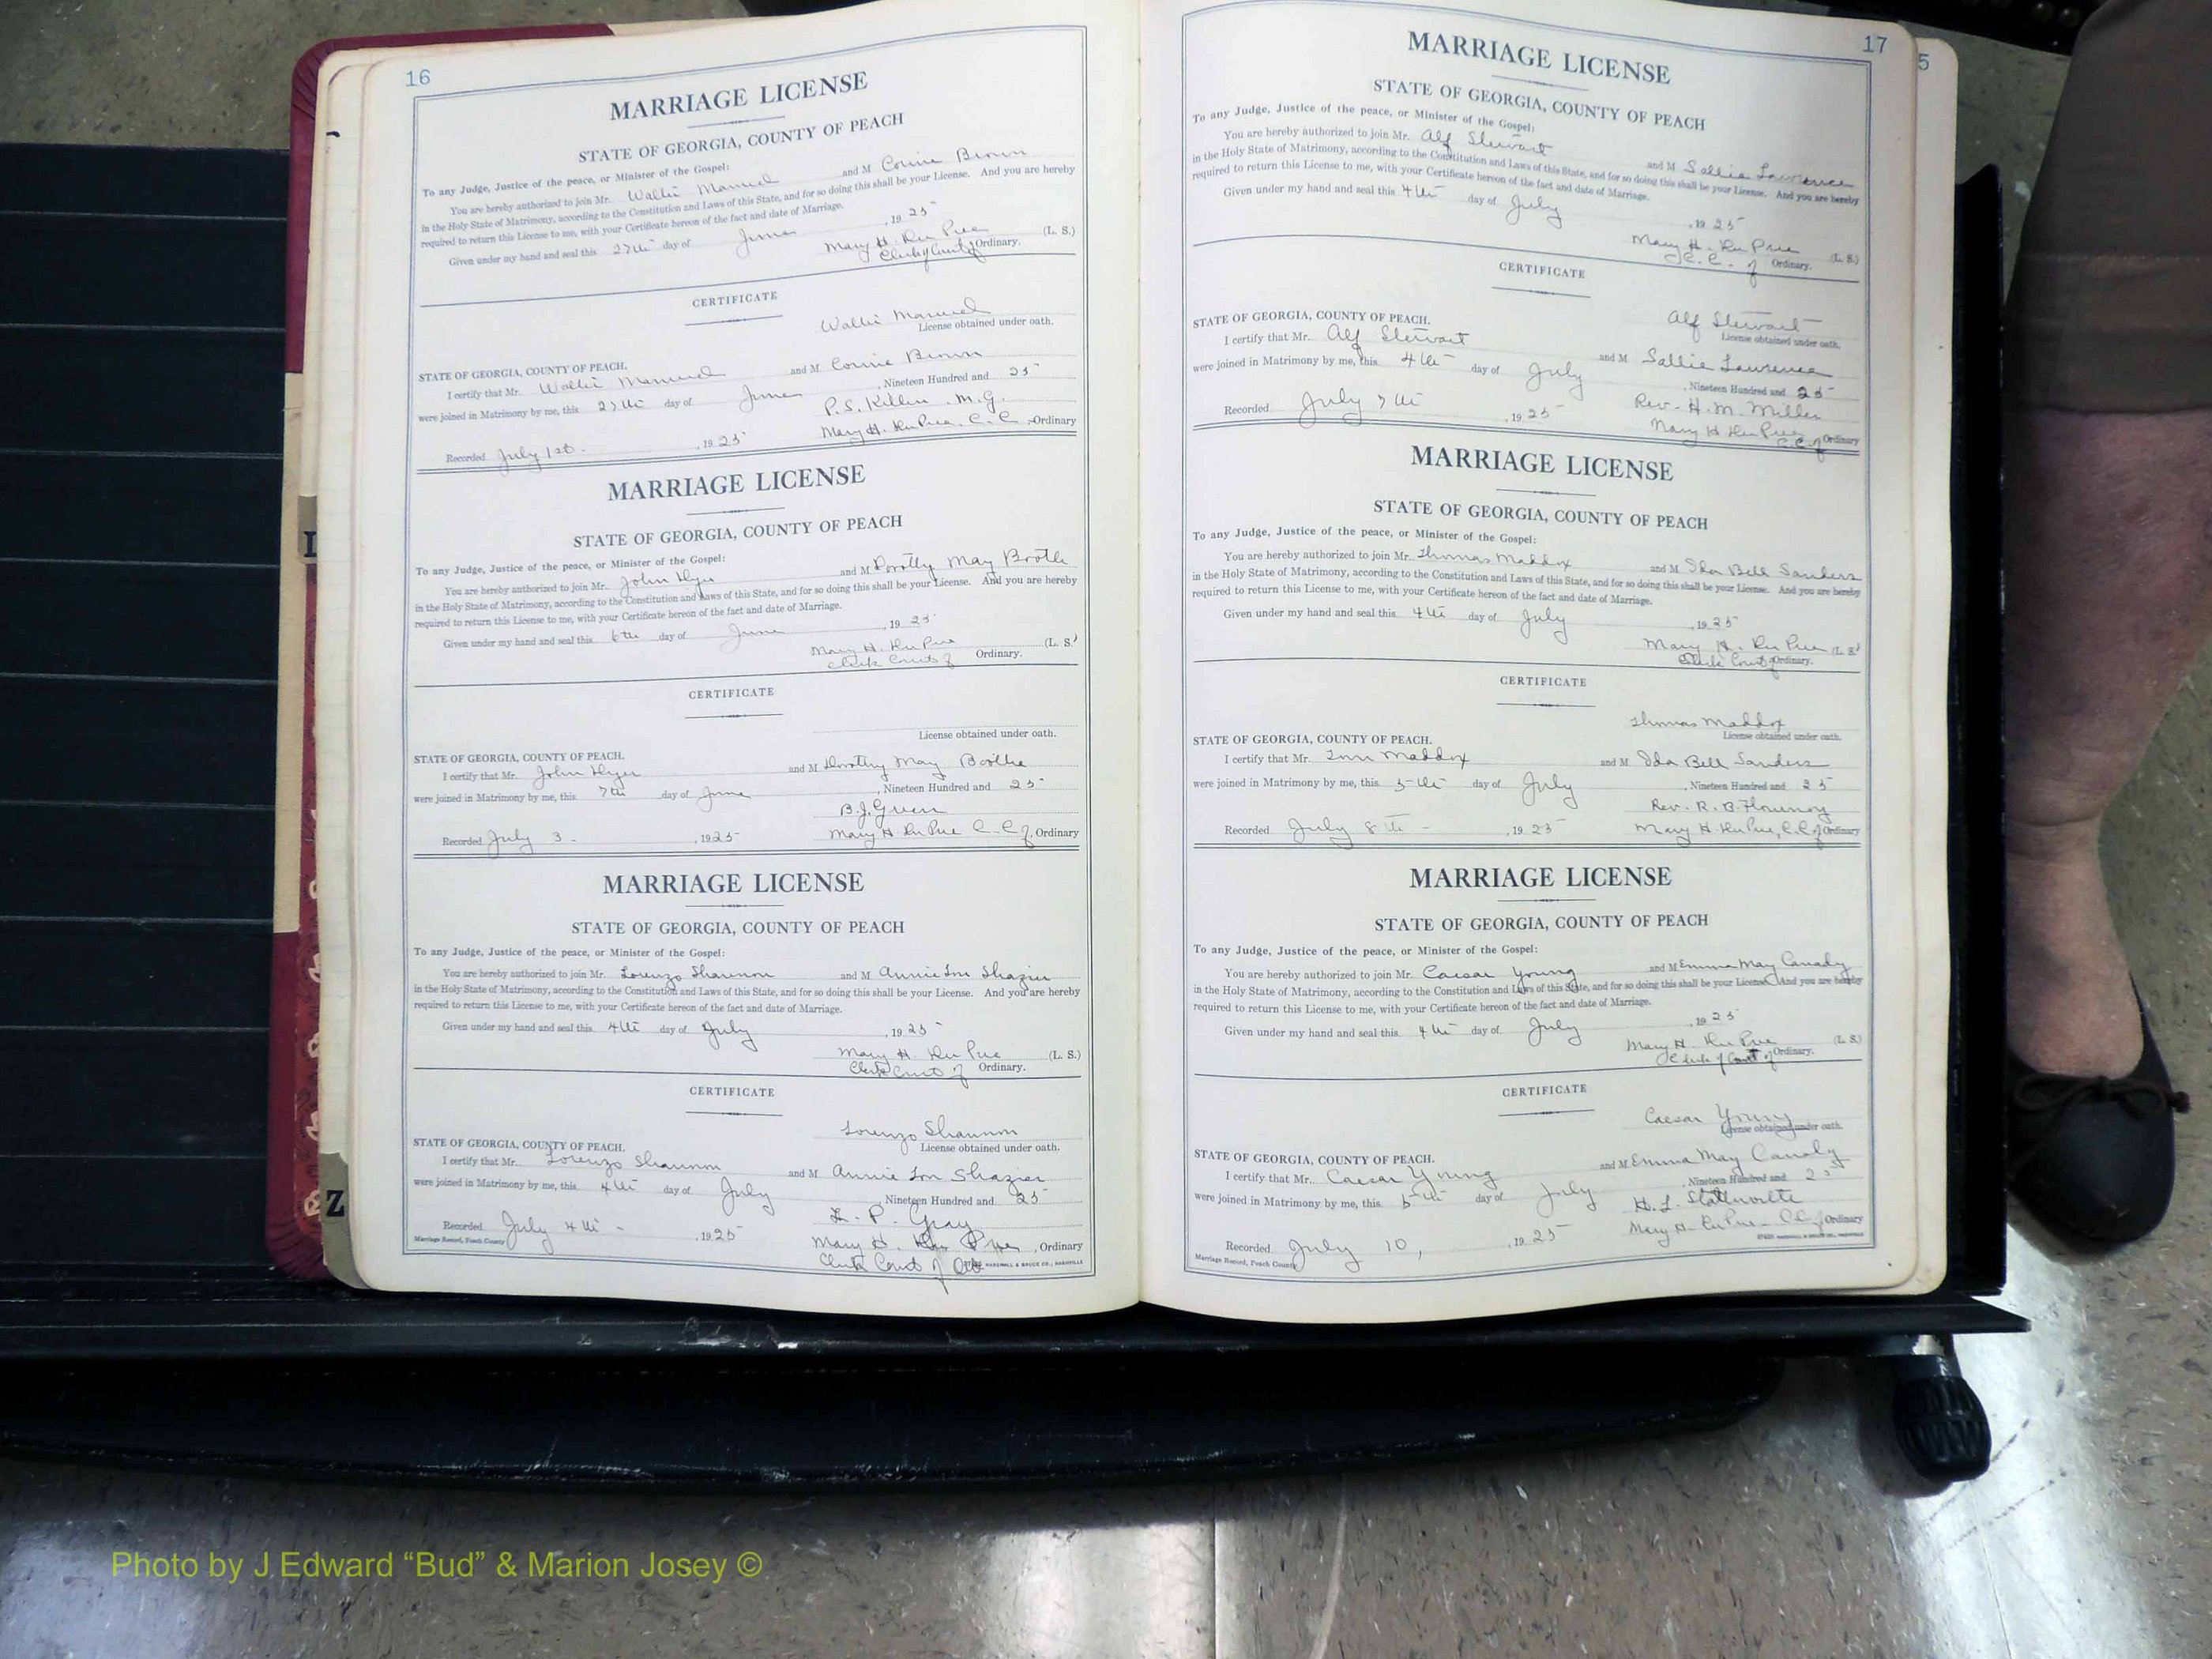 16
MARRIAGE LICENSE
STATE OF GEORGIA, COUNTY OF PEACH
To any Judge, Justice of the peace, or Minister of the Gospel:
You are hereby authorized to join Mr. Walli Manuel and M Connie Brown
in the Holy State of Matrimony, according to the Constitution and Laws of this State, and for so doing this shall be your License. And you are hereby
required to return this License to me, with your Certificate hereon of the fact and date of Marriage.
Given under my hand and seal this 27th day of June, 1925
Mary H. DuPree (L. S.)
Clerk of Court of Ordinary.
CERTIFICATE
Walli Manuel
License obtained under oath.
STATE OF GEORGIA, COUNTY OF PEACH.
I certify that Mr. Walli Manuel and M Connie Brown
were joined in Matrimony by me, this 27th day of June, Nineteen Hundred and 25
P.S. Killen M.G.
Recorded July 1st. , 1925 Mary H. DuPree, C.C., Ordinary
MARRIAGE LICENSE
STATE OF GEORGIA, COUNTY OF PEACH
To any Judge, Justice of the peace, or Minister of the Gospel:
You are hereby authorized to join Mr. John and M Dorothy May
in the Holy State of Matrimony, according to the Constitution and Laws of this State, and for so doing this shall be your License. And you are hereby
required to return this License to me, with your Certificate hereon of the fact and date of Marriage.
Given under my hand and seal this 6th day of June, 1925
Mary H. DuPree (L. S.)
Clerk Court of Ordinary.
CERTIFICATE
License obtained under oath.
STATE OF GEORGIA, COUNTY OF PEACH.
I certify that Mr. John and M Dorothy May
were joined in Matrimony by me, this 7th day of June, Nineteen Hundred and 25
B.J. Green
Recorded July 3 - , 1925 Mary H. DuPree C.C. of, Ordinary
MARRIAGE LICENSE
STATE OF GEORGIA, COUNTY OF PEACH
To any Judge, Justice of the peace, or Minister of the Gospel:
You are hereby authorized to join Mr. Lorenzo Shannon and M Annie Lou
in the Holy State of Matrimony, according to the Constitution and Laws of this State, and for so doing this shall be your License. And you are hereby
required to return this License to me, with your Certificate hereon of the fact and date of Marriage.
Given under my hand and seal this 4th day of July, 1925
Mary H. DuPree (L. S.)
Clerk Court of Ordinary.
CERTIFICATE
Lorenzo Shannon
License obtained under oath.
STATE OF GEORGIA, COUNTY OF PEACH.
I certify that Mr. Lorenzo Shannon and M Annie Lou
were joined in Matrimony by me, this 4th day of July, Nineteen Hundred and 25
P. Gray
Recorded July 4th - , 1925 Mary H. DuPree, Ordinary
Marriage Record, Peach County
Clerk Court of MARSHALL & BRUCE CO., NASHVILLE
17
MARRIAGE LICENSE
STATE OF GEORGIA, COUNTY OF PEACH
To any Judge, Justice of the peace, or Minister of the Gospel:
You are hereby authorized to join Mr. Alf Stewart and M Sallie Lawrence
in the Holy State of Matrimony, according to the Constitution and Laws of this State, and for so doing this shall be your License. And you are hereby
required to return this License to me, with your Certificate hereon of the fact and date of Marriage.
Given under my hand and seal this 4th day of July, 1925
Mary H. DuPree (L. S.)
C.C. of Ordinary.
CERTIFICATE
Alf Stewart
License obtained under oath.
STATE OF GEORGIA, COUNTY OF PEACH.
I certify that Mr. Alf Stewart and M Sallie Lawrence
were joined in Matrimony by me, this 4th day of July, Nineteen Hundred and 25
Rev. H. M. Miller
Recorded July 7th, 1925 Mary H DuPree C.C. of Ordinary
MARRIAGE LICENSE
STATE OF GEORGIA, COUNTY OF PEACH
To any Judge, Justice of the peace, or Minister of the Gospel:
You are hereby authorized to join Mr. Thomas Maddox and M Ida Bell Sanders
in the Holy State of Matrimony, according to the Constitution and Laws of this State, and for so doing this shall be your License. And you are hereby
required to return this License to me, with your Certificate hereon of the fact and date of Marriage.
Given under my hand and seal this 4th day of July, 1925
Mary H. DuPree (L. S.)
Clerk Court of Ordinary.
CERTIFICATE
Thomas Maddox
License obtained under oath.
STATE OF GEORGIA, COUNTY OF PEACH.
I certify that Mr. Maddox and M Ida Bell Sanders
were joined in Matrimony by me, this 5th day of July, Nineteen Hundred and 25
Rev. R. B. Flournoy
Recorded July 8th - , 1925 Mary H. DuPree, C.C. of Ordinary
MARRIAGE LICENSE
STATE OF GEORGIA, COUNTY OF PEACH
To any Judge, Justice of the peace, or Minister of the Gospel:
You are hereby authorized to join Mr. Caesar Young and M Emma May Canady
in the Holy State of Matrimony, according to the Constitution and Laws of this State, and for so doing this shall be your License. And you are hereby
required to return this License to me, with your Certificate hereon of the fact and date of Marriage.
Given under my hand and seal this 4th day of July, 1925
Mary H. DuPree (L. S.)
Clerk of Court of Ordinary.
CERTIFICATE
Caesar Young
License obtained under oath.
STATE OF GEORGIA, COUNTY OF PEACH.
I certify that Mr. Caesar Young and M Emma May Canady
were joined in Matrimony by me, this 5th day of July, Nineteen Hundred and 25
Recorded July 10, , 1925 Mary H. DuPree - C.C. of Ordinary
Marriage Record, Peach County
5
L
Z
Photo by J Edward “Bud” & Marion Josey ©